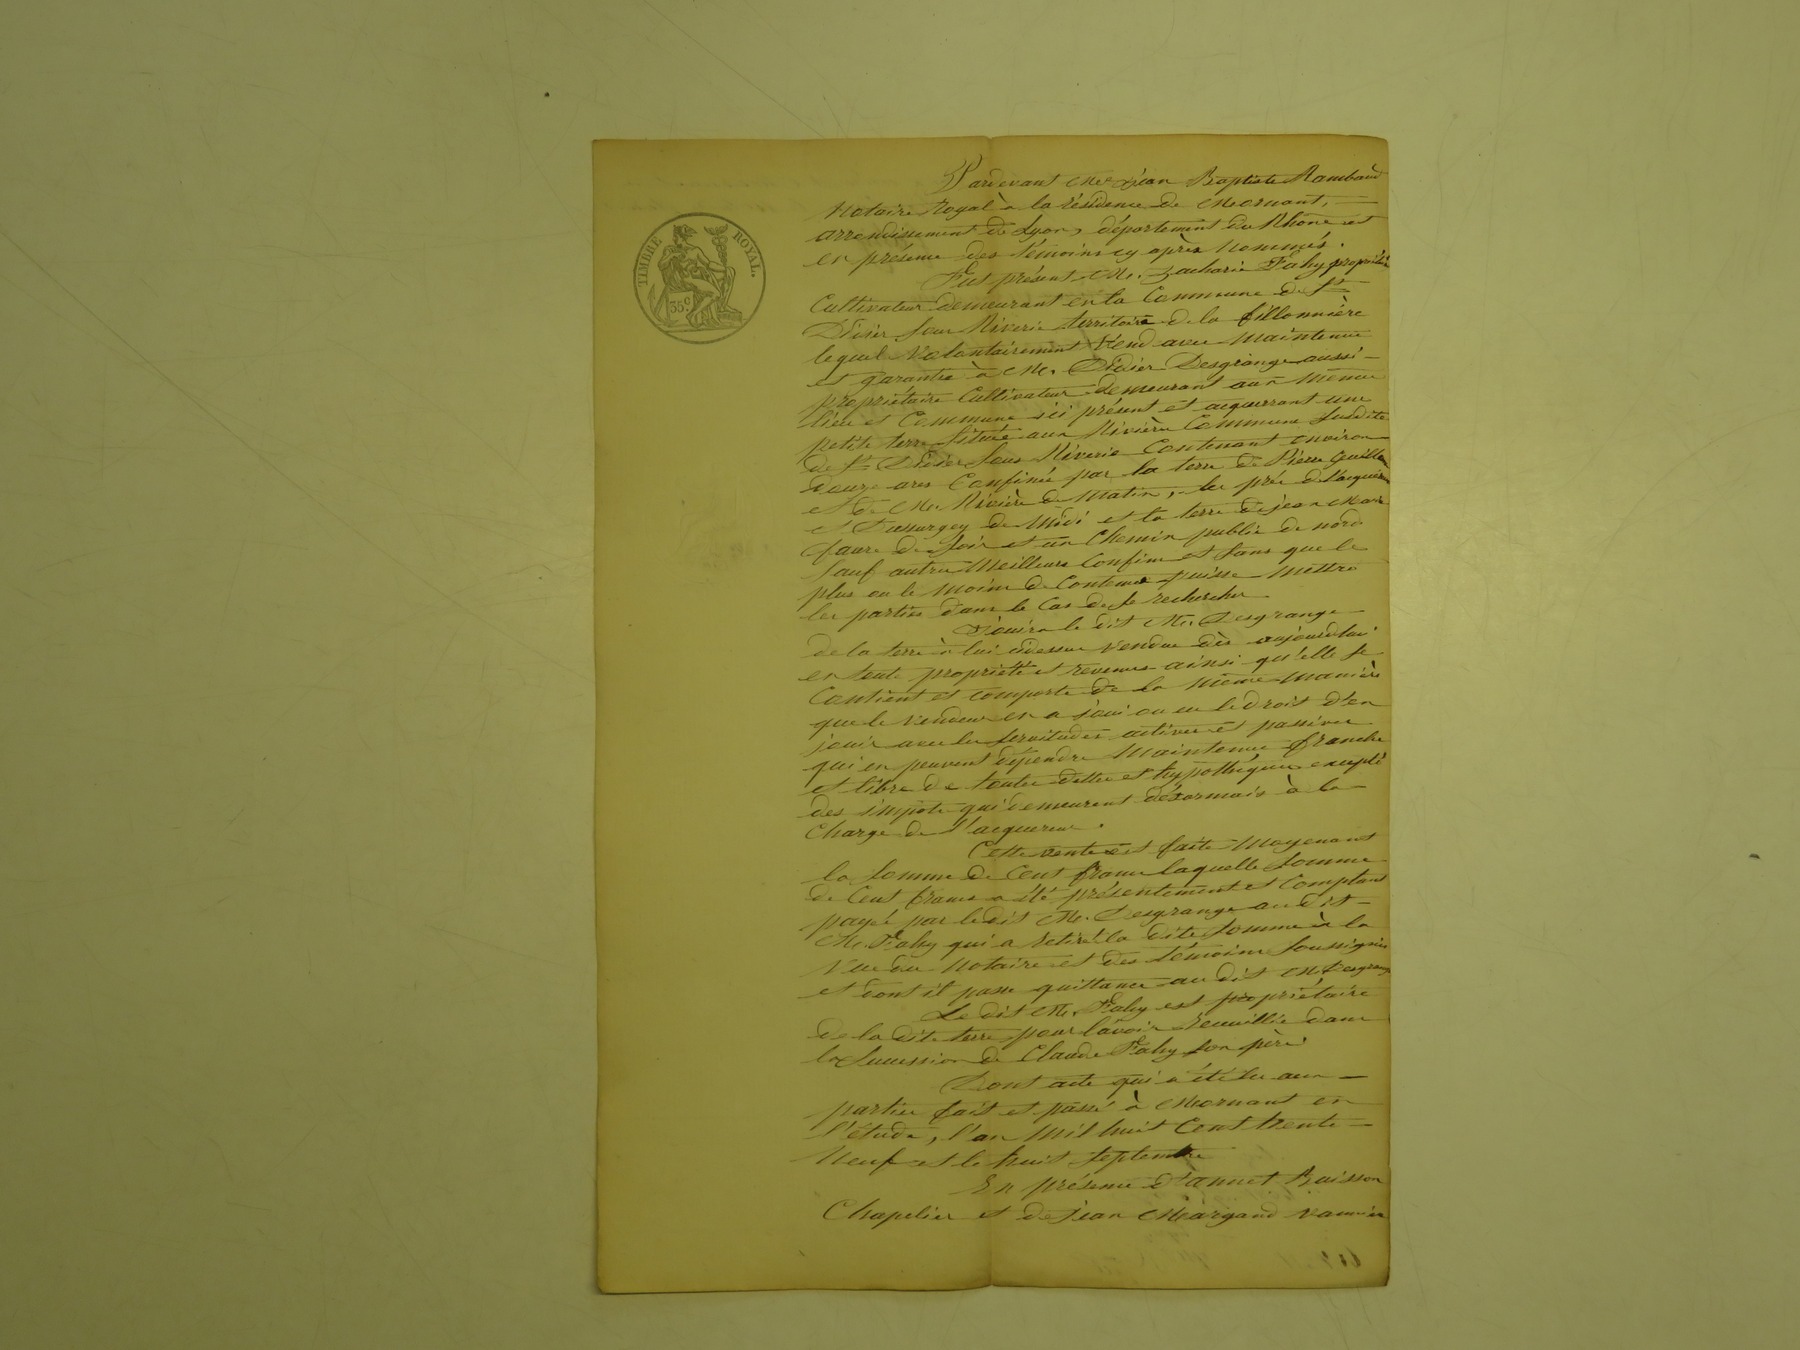 TIMBRE ROYAL.
35.c
Pardevant Me Jean Baptiste Rambaud
Notaire Royal à la résidence de Mornant,
arrondissement de Lyon, département du Rhône et
en présence des témoins cy après nommés.
Fut présent M. Zacharie Fahy propriétaire
Cultivateur demeurant en la Commune de St
Didier sous Riverie territoire de la fillonnière
lequel volontairement vend avec maintenue
et garantie à M. Didier Desgrange aussi
propriétaire Cultivateur demeurant aux mêmes
lieu et Commune ici présent et acquerrant une
petite terre située aux Rivière Commune susdite
de St Didier sous Riverie Contenant environ
douze ares Confinée par la terre de Pierre Guillon
et de M. Rivière de matin, le pré de l'acquéreur
et Fassurgey de midi et la terre de jean Marie
faure de soir et un Chemin public de nord
sauf autres meilleurs Confins et sans que le
plus ou le moins de Contenue puisse mettre
les parties dans le Cas de se rechercher
Jouira le dit M. Desgrange
de la terre à lui cidessus vendue dès aujourd'hui
en toute propriété et revenus ainsi qu'elle se
Contient et comporte de la même manière
que le vendeur en a joui ou eu le droit d'en
jouir avec les servitudes actives et passives
qui en peuvent dépendre maintenue franche
et libre de toutes dettes et hypothèques excepté
des impots qui demeurent désormais à la
Charge de l'acquereur.
Cette vente est faite moyenant
la somme de Cent francs laquelle somme
de Cent francs a été présentement et Comptant
payée par le dit M. Desgrange au dit
M. Fahy qui a retiré la dite somme à la
vue du Notaire et des témoins soussignés
et dont il passe quittance au dit M. Desgrange
Le dit M. Fahy est propriétaire
de la dite terre pour l'avoir recueillie dans
la succession de Claude Fahy son père.
Dont acte qui a été lu aux
parties fait et passé à Mornant en
l'étude, l'an mil huit Cent trente
neuf et le huit septembre
En présence d'annet Buisson
Chapelier et de jean Margand vannier